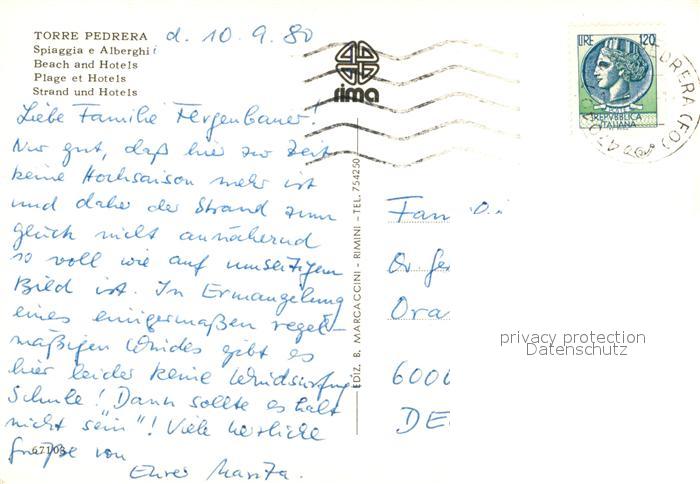 TORRE PEDRERA
Spiaggia e Alberghi
Beach and Hotels
Plage et Hotels
Strand und Hotels
d. 10.9.80
Liebe Familie Mergenbauer!
Nur gut, daß hier zur Zeit
keine Hochsaison mehr ist
und daher der Strand zum
Glück nicht annähernd
so voll wie auf umseitigem
Bild ist. In Ermangelung
eines einigermaßen regel-
mäßigen Windes gibt es
hier leider keine Windsurfing
Schule! Dann sollte es halt
nicht "sein"! Viele herzliche
Grüße von
Eurer Marita.
67103
rima
EDIZ. B. MARCACCINI - RIMINI - TEL. 754250
LIRE 120
REPVBBLICA
ITALIANA
PEDRERA (FO)
Fam
Ora
6000
DE
privacy protection
Datenschutz